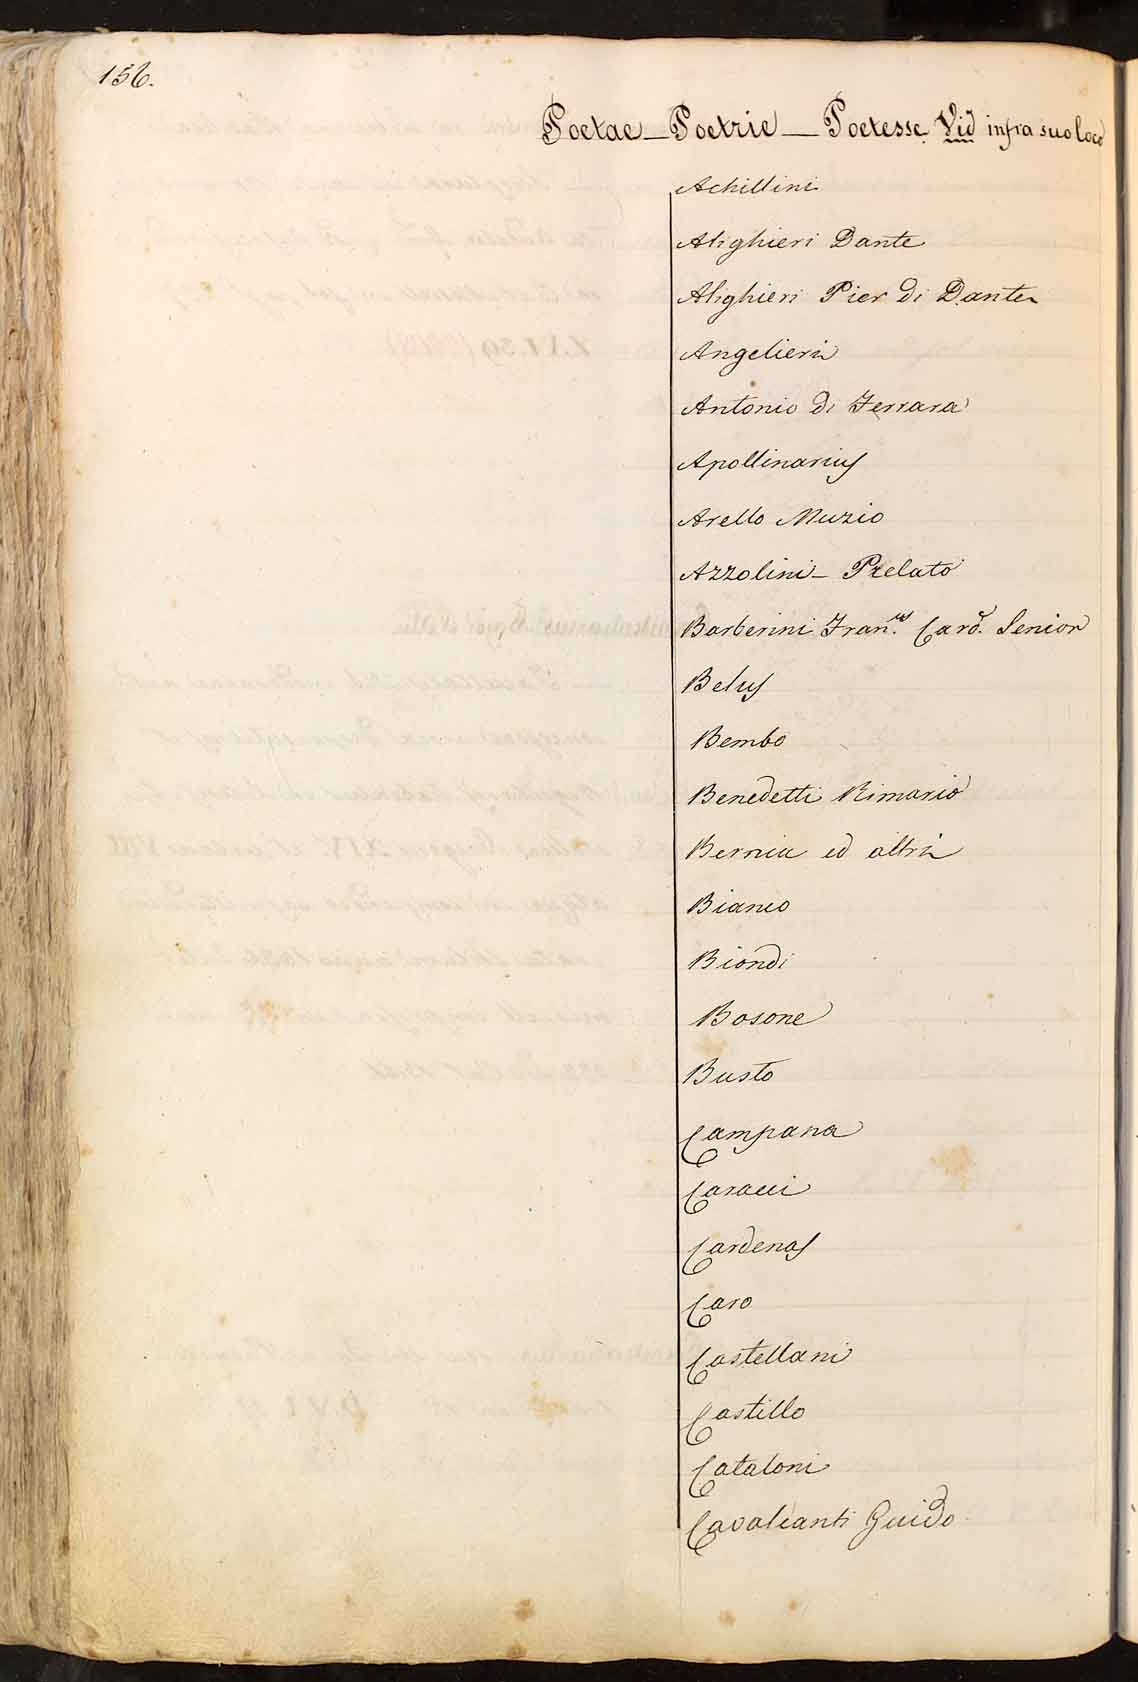 156.
Poetae — Poetrie — Poetesse Vid infra suo loco
Achillini
Alighieri Dante
Alighieri Pier di Dante
Angelieri
Antonio di Ferrara
Apollinarius
Arello Muzio
Azzolini - Prelato
Barberini Fran.us Card. Senior
Belus
Bembo
Benedetti Rimario
Bernia ed altri
Bianco
Biondi
Bosone
Busto
Campana
Caracci
Cardenas
Caro
Castellani
Castillo
Cataloni
Cavalcanti Guido